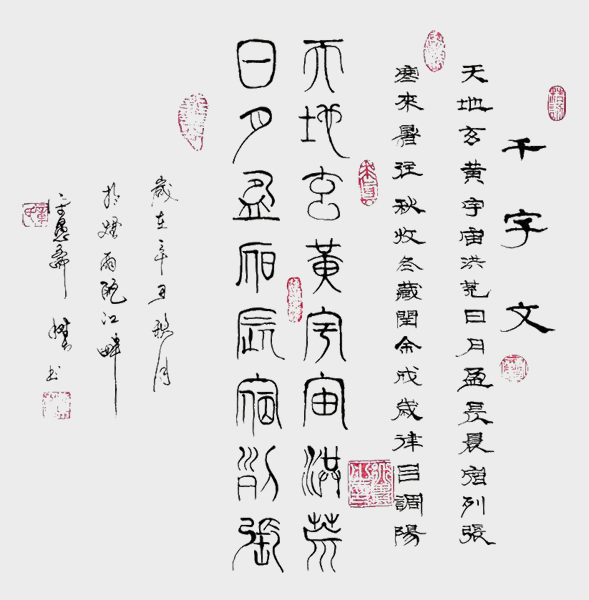 千字文
天地玄黃宇宙洪荒日月盈昃辰宿列張
寒來暑往秋收冬藏閏余成歲律呂調陽
天地玄黃宇宙洪荒
日月盈昃辰宿列張
歲在辛丑秋月
於煙雨甌江畔
愚齋 書